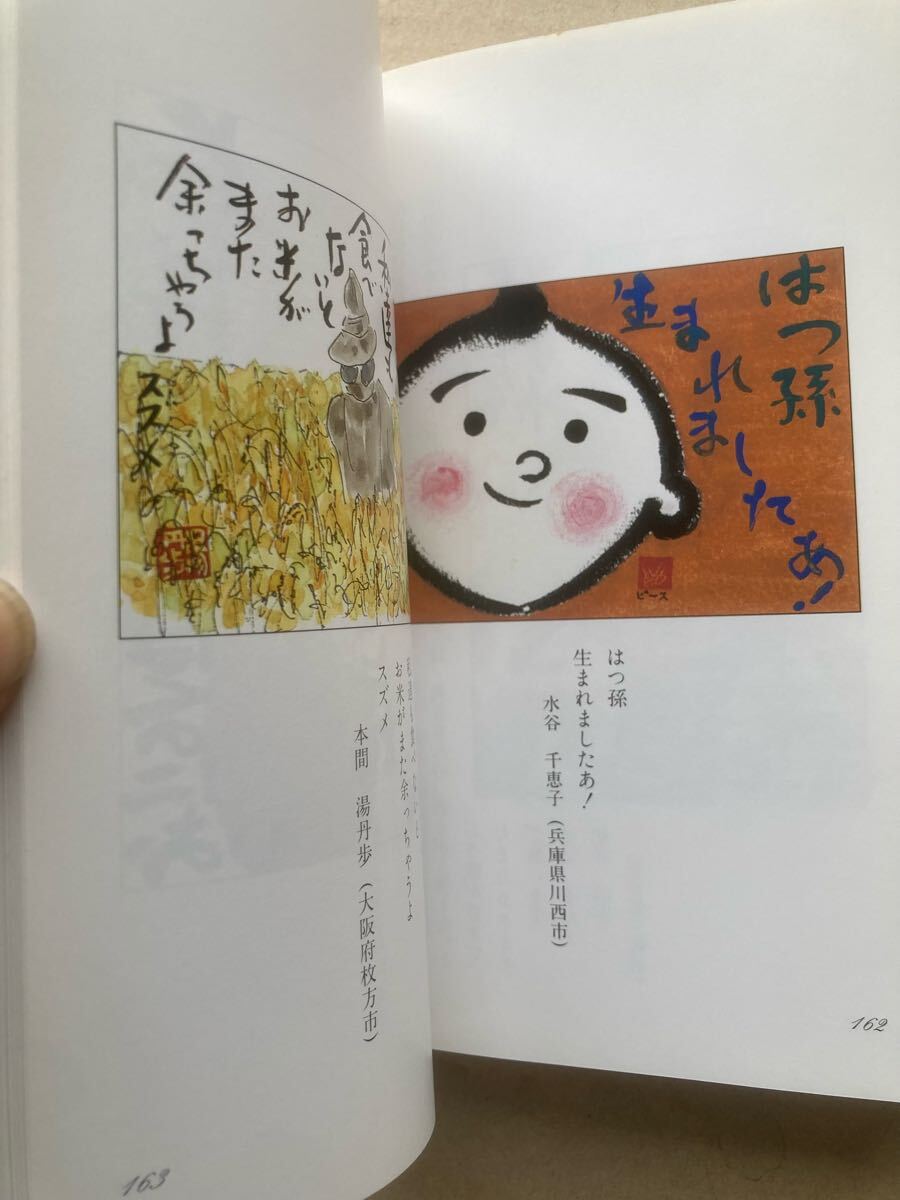 はつ孫
生まれましたあ!
ピース
はつ孫
生まれましたあ!
水谷 千恵子(兵庫県川西市)
162
食べ
ないと
お米が
また
余っちゃうよ
スズメ
お米がまた余っちゃうよ
スズメ
本間 湯丹歩(大阪府枚方市)
163